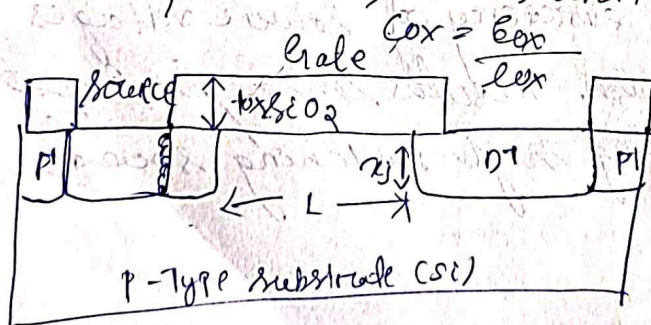 Cox = εox
tox
Gate
Source
tox SiO2
P+
xj
n+
P+
L
P-Type substrate (Si)